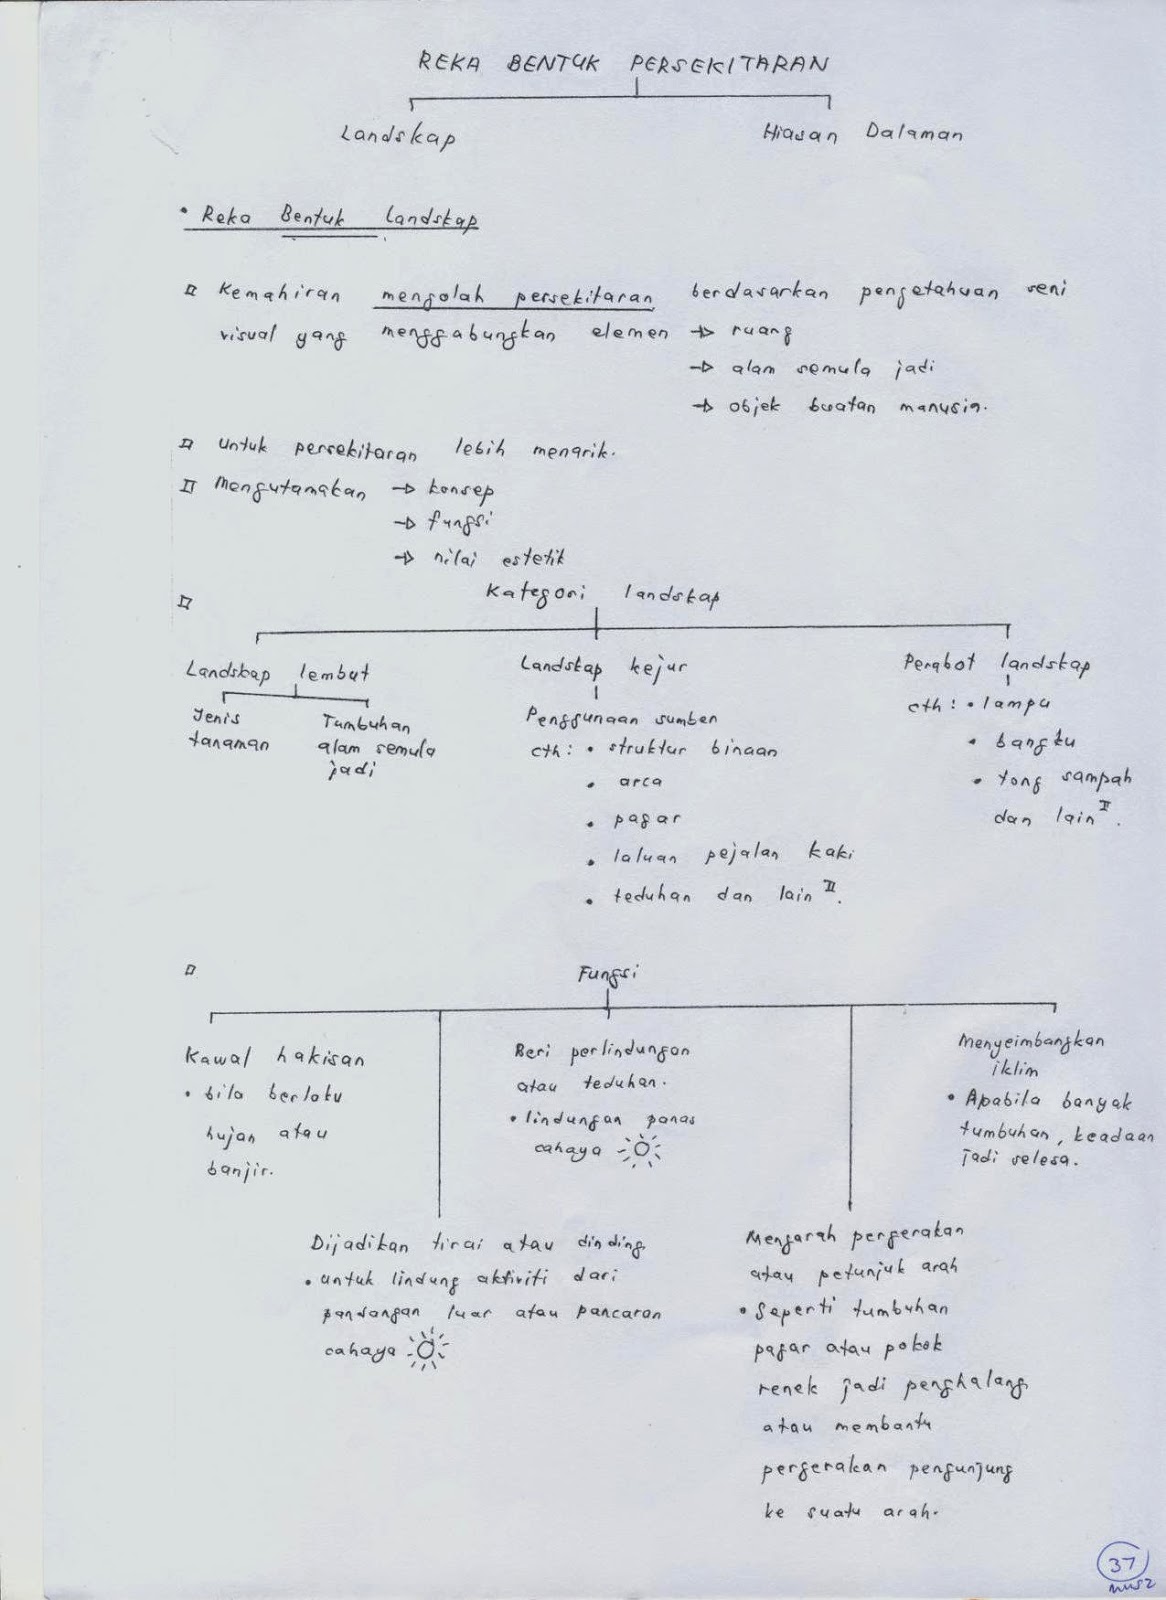 REKA BENTUK PERSEKITARAN
Landskap
Hiasan Dalaman
• Reka Bentuk landskap
Kemahiran mengolah persekitaran berdasarkan pengetahuan seni
visual yang menggabungkan elemen → ruang
→ alam semula jadi
→ objek buatan manusia.
untuk persekitaran lebih menarik.
Mengutamakan → konsep
→ fungsi
→ nilai estetik
Kategori landskap
Landskap lembut
Jenis
tanaman
Tumbuhan
alam semula
jadi
Landskap kejur
Penggunaan sumber
cth: • struktur binaan
• arca
• pagar
• laluan pejalan kaki
• teduhan dan lain II.
Perabot landskap
cth: • lampu
• bangku
• tong sampah
dan lain II.
Fungsi
Kawal hakisan
• bila berlaku
hujan atau
banjir.
Dijadikan tirai atau dinding
• untuk lindung aktiviti dari
pandangan luar atau pancaran
cahaya
Beri perlindungan
atau teduhan.
• lindungan panas
cahaya
Mengarah pergerakan
atau petunjuk arah
• Seperti tumbuhan
pagar atau pokok
renek jadi penghalang
atau membantu
pergerakan pengunjung
ke suatu arah.
Menyeimbangkan
iklim
• Apabila banyak
tumbuhan, keadaan
jadi selesa.
37